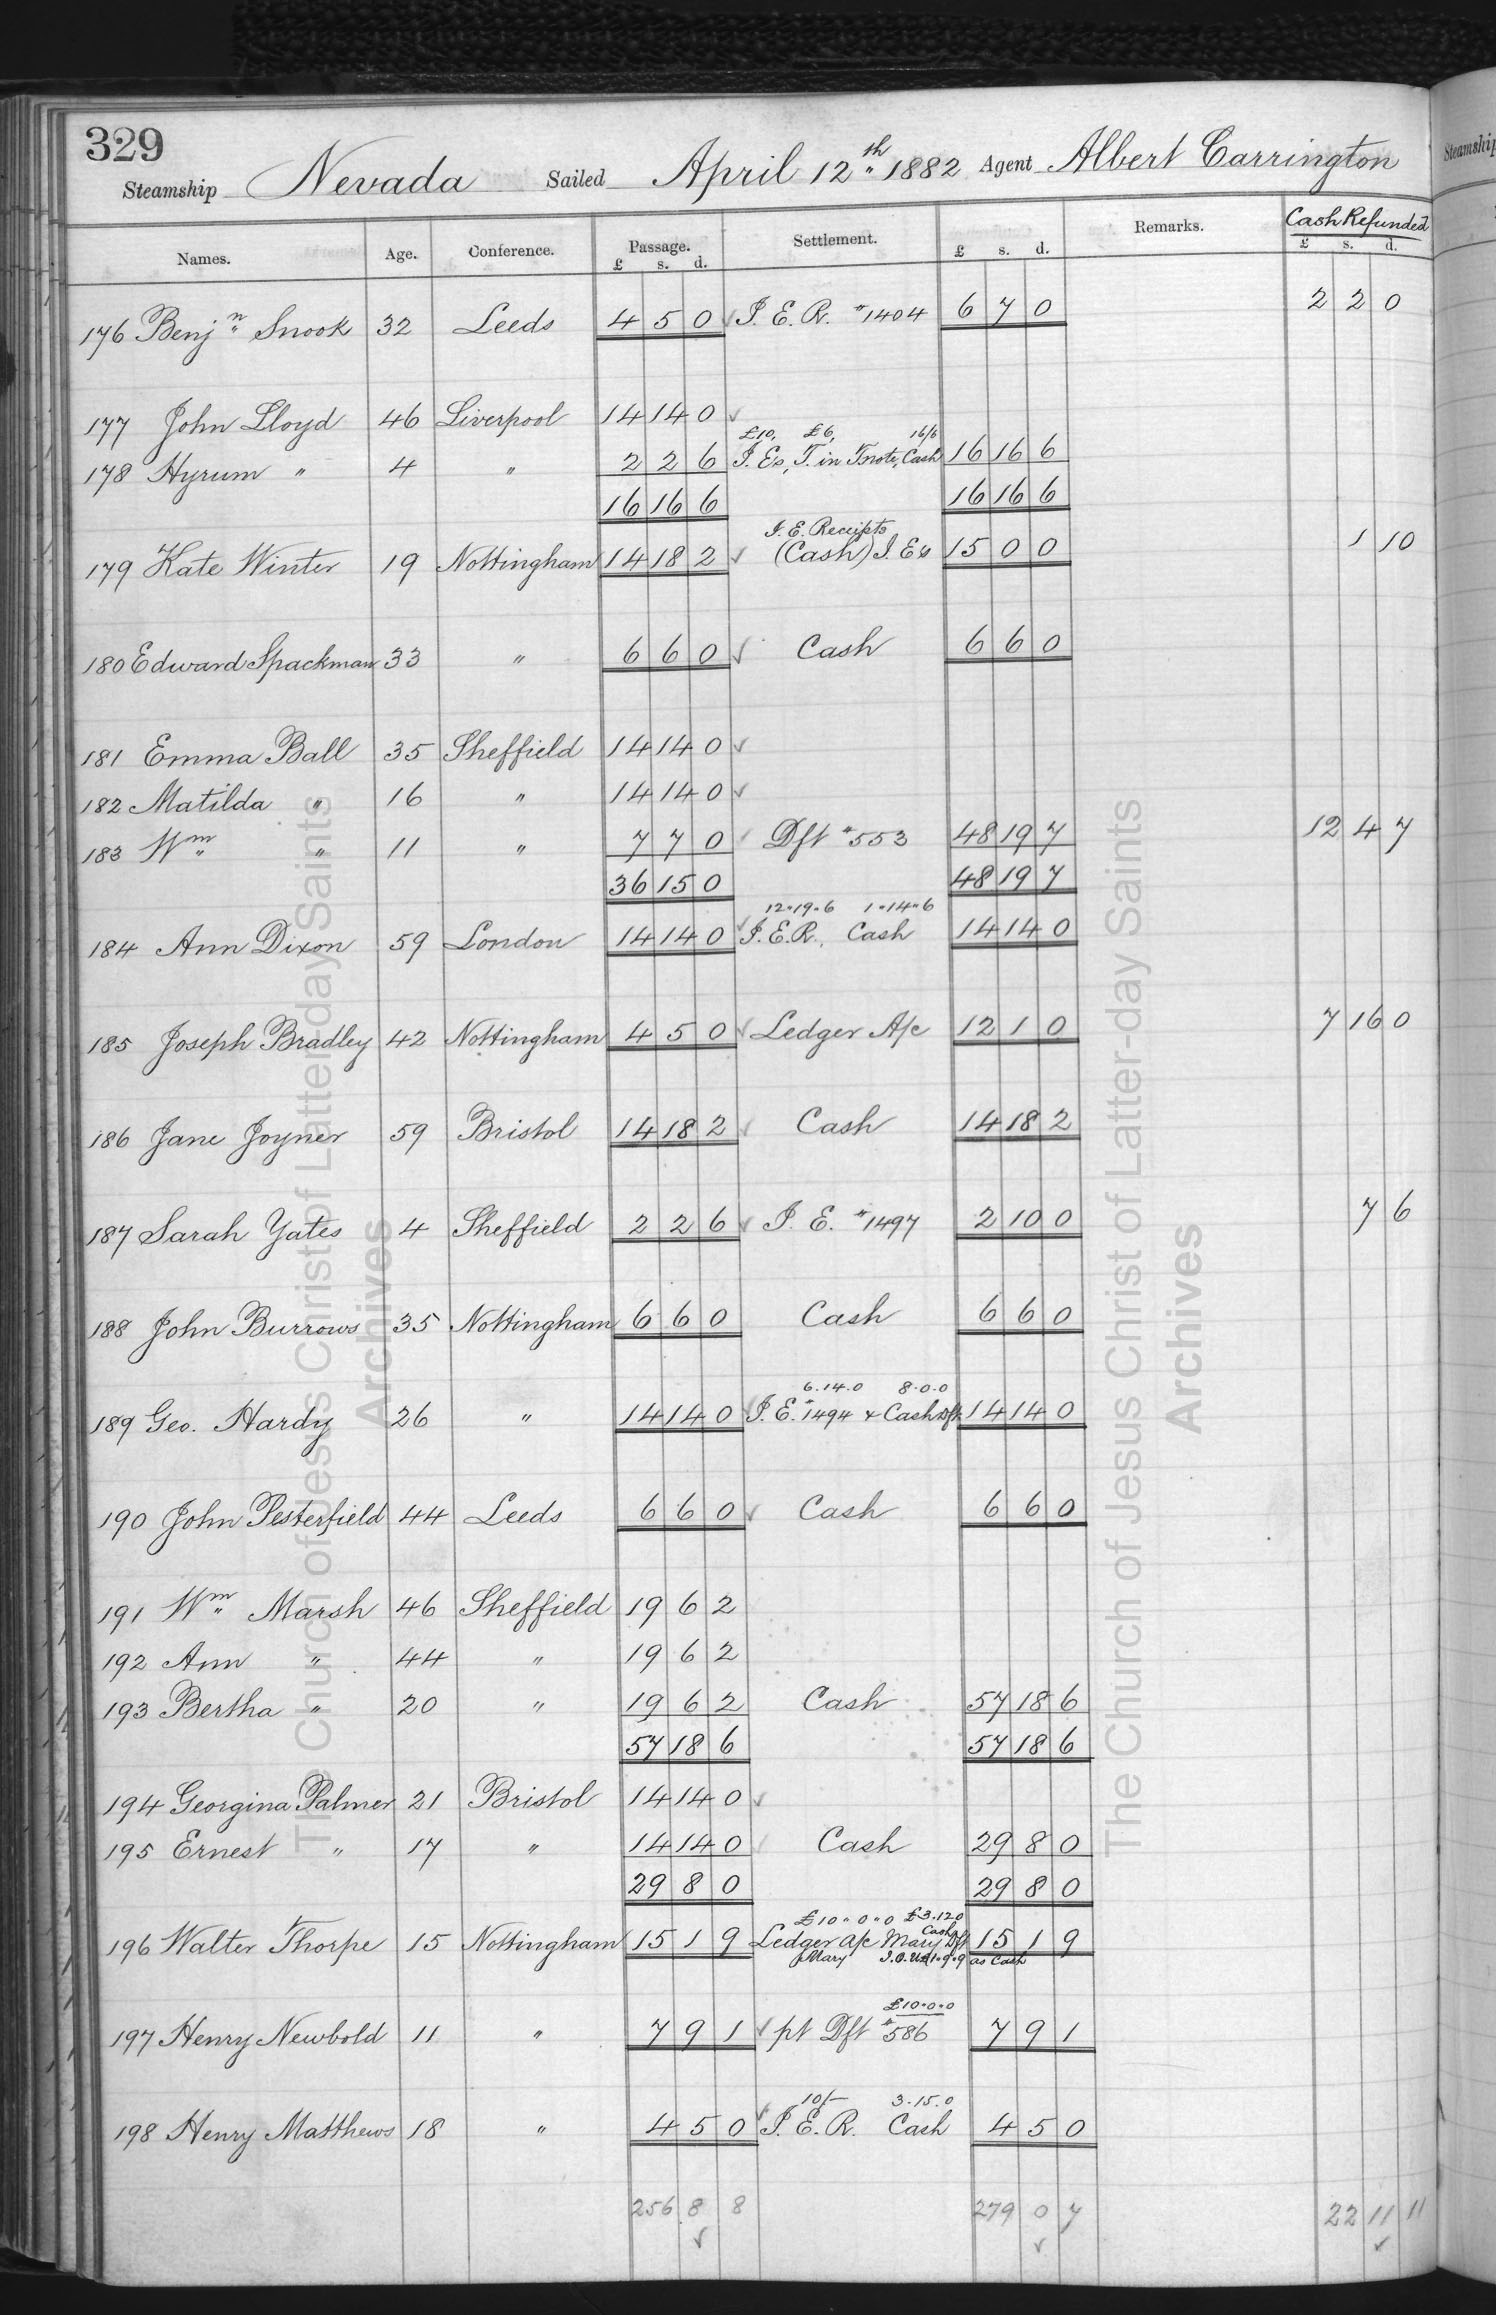 329
Steamship Nevada Sailed April 12th 1882 Agent Albert Carrington
Names. Age. Conference. Passage. £ s. d. Settlement. £ s. d. Remarks. Cash Refunded £ s. d.
176 Benjn Snook 32 Leeds 4 5 0 ✓ I. E. R. #1404 6 7 0 2 2 0
177 John Lloyd 46 Liverpool 14 14 0 ✓
£10, £6, 16/6
178 Hyrum " 4 " 2 2 6 I. Es, T. in Tnote, Cash 16 16 6
16 16 6 16 16 6
I. E. Receipts
179 Kate Winter 19 Nottingham 14 18 2 ✓ (Cash) I. Es 15 0 0 1 10
180 Edward Spackman 33 " 6 6 0 ✓ Cash 6 6 0
181 Emma Ball 35 Sheffield 14 14 0 ✓
182 Matilda " 16 " 14 14 0 ✓
183 Wm " 11 " 7 7 0 ✓ Dft #553 48 19 7 12 4 7
36 15 0 48 19 7
12"19"6 1"14"6
184 Ann Dixon 59 London 14 14 0 ✓ I. E. R., Cash 14 14 0
185 Joseph Bradley 42 Nottingham 4 5 0 ✓ Ledger A/c 12 1 0 7 16 0
186 Jane Joyner 59 Bristol 14 18 2 ✓ Cash 14 18 2
187 Sarah Yates 4 Sheffield 2 2 6 ✓ I. E. #1497 2 10 0 7 6
188 John Burrows 35 Nottingham 6 6 0 Cash 6 6 0
6.14.0 8.0.0
189 Geo. Hardy 26 " 14 14 0 ✓ I. E. #1494 & Cash Dft 14 14 0
190 John Pesterfield 44 Leeds 6 6 0 ✓ Cash 6 6 0
191 Wm Marsh 46 Sheffield 19 6 2
192 Ann " 44 " 19 6 2
193 Bertha " 20 " 19 6 2 Cash 57 18 6
57 18 6 57 18 6
194 Georgina Palmer 21 Bristol 14 14 0 ✓
195 Ernest " 17 " 14 14 0 ✓ Cash 29 8 0
29 8 0 29 8 0
£10"0"0 £3.12.0
Cash
196 Walter Thorpe 15 Nottingham 15 1 9 Ledger a/c Mary Dft 15 1 9
Mary I.O.U. £1"9"9 as Cash
£10"0"0
197 Henry Newbold 11 " 7 9 1 ✓ pt Dft #586 7 9 1
10/- 3.15.0
198 Henry Matthews 18 " 4 5 0 ✓ I. E. R. Cash 4 5 0
256 8 8 279 0 7 22 11 11
✓ ✓ ✓
The Church of Jesus Christ of Latter-day Saints
Archives
The Church of Jesus Christ of Latter-day Saints
Archives
Steamship